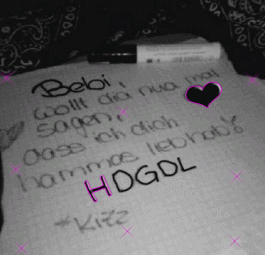 Bebi,
wollt dia nua mal
sagen,
dass ich dich
hammas lieb hab
HDGDL
*Kizz